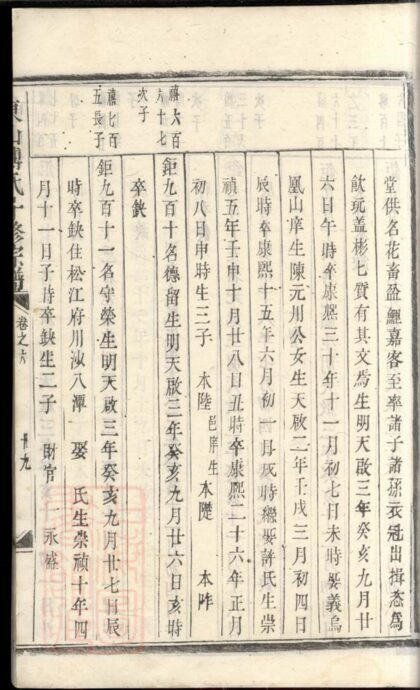 堂供名花畜盈鯉嘉客至率諸子諸孫衣冠出揖忞爲
飲玩盖彬七質有其文焉生明天啟三年癸亥九月廿
六日午時卒康熙三十年十一月初七日未時娶義烏
鳳山庠生陳元州公女生天啟二年壬戌三月初四日
辰時卒康熙十五年六月初一日戌時繼娶許氏生崇
禎五年壬申十月廿八日丑時卒康熙二十六年正月
初八日申時生三子 本陸 邑庠生 本隨 本昨
禧六百六十七次子
鉅九百十名德留生明天啟三年癸亥九月廿六日亥時
卒缺
禧七百五長子
鉅九百十一名守榮生明天啟三年癸亥九月廿七日辰
時卒缺住松江府川沙八潭 娶 氏生崇禎十年四
月十一日子時卒缺生二子 財官 永盛
東山傅氏十修宗譜 卷之六 十九